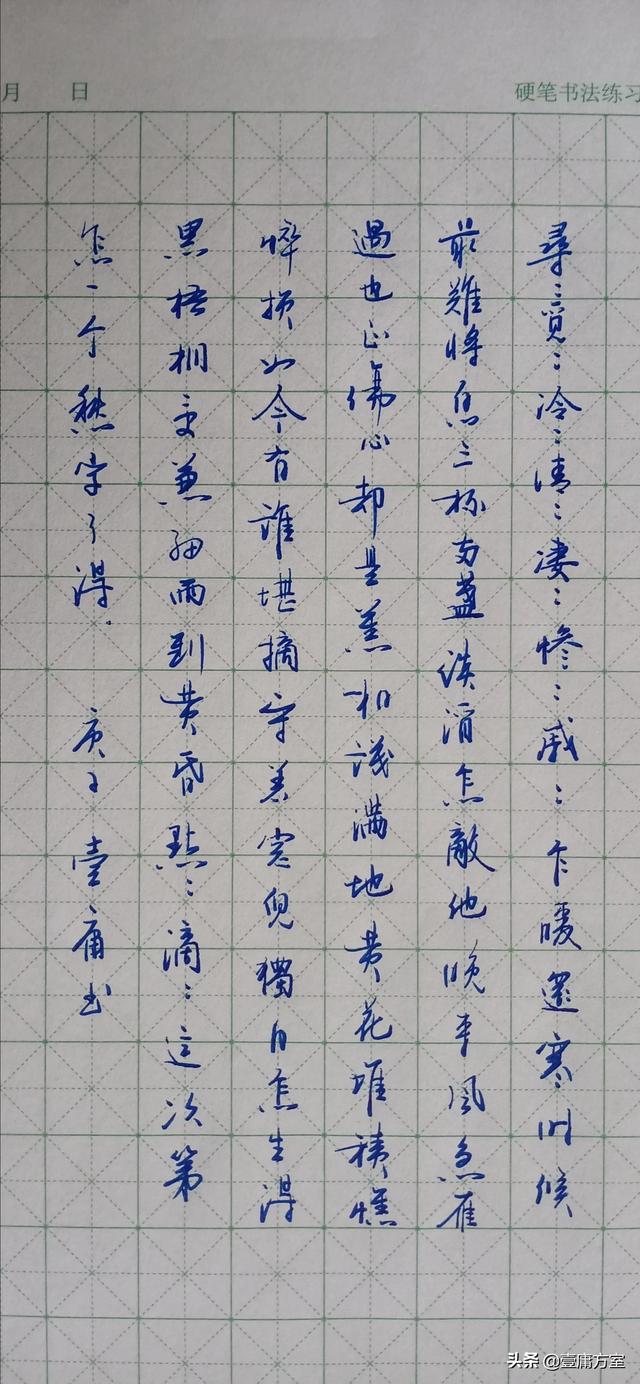 月 日
硬笔书法练习
尋:覓:冷:清:凄:惨:戚:乍暖還寒时候
最難将息三杯两盏淡酒怎敵他晚来風急雁
過也正傷心却是舊相識满地黄花堆積憔
悴损如今有誰堪摘守着窓兒獨自怎生得
黑梧桐更兼細雨到黄昏點:滴:這次第
怎一个愁字了得
庚子 壹庸书
头条 @壹庸方室